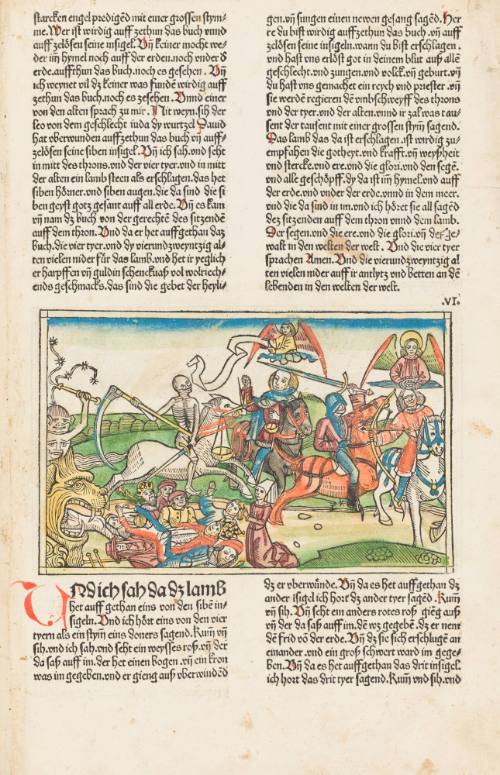 starcken engel predigēd mit einer grossen stym-
me. Wer ist wirdig auff zethun das buch vnnd
auff zelösen seine insigel. Vn̄ keiner mocht we-
der im̄ hymel noch auff der erden. noch vnder d̄
erde. auffthun das buch. noch es gesehen. Vn̄
ich weynet vil dz keiner was fundē wirdig auff
zethun das buch. noch es zesehen. Vnnd einer
von den alten sprach zu mir. Nit weyn. sih der
leo von dem geschlecht iuda dy wurtzel Dauid
hat vberwunden auffzethun das buch vn̄ auff-
zelösen seine siben insigel. Vn̄ ich sah. vnd seht
ȳ mitt des throns. vnd der vier tyer. vnd in mitt
der alten ein lamb steen als erschlagen. das het
siben hörner. vnd siben augen. die da sind die si
ben geyst gotz gesant auff all erde. Vn̄ es kam
vn̄ nam dz buch von der gerechtē des sitzendē
auff dem thron. Vnd da er het auffgethan daz
buch. die vier tyer. vnd dy vierundzweyntzig al-
ten vielen nider für das lamb. vnd het ir yeglich
er harpffen vn̄ guldin schenckuaß vol wolriech-
ends geschmacks. das sind die gebet der heyli-
gen. vn̄ sungen einen newen gesang sagēd. Her
re du bist wirdig auffzethun das buch. vn̄ auff
zelösen seine insigeln. wann du bist erschlagen.
vnd hast vns erlöst got in deinem blut auß alle
geschlecht. vnd zungen. vnd volck. vn̄ geburt. vn̄
du hast vns gemachet ein reych vnd priester. vn̄
sie werdē regieren dē vmbschweyff des throns
vnd der tyer. vnd der alten. vnnd ir zal was tau-
sent der tausent mit einer grossen stym̄ sagend.
Das lamb das da ist erschlagen. ist wirdig zu-
empfahen die gotheyt. vnd krafft. vn̄ weyßheit
vnd stercke. vnd ere. vnd die glori. vnd den segē.
vnd alle geschöpff. dy da ist im̄ hymel. vnd auff
der erde. vnd vnder der erde. vnnd in dem meer.
vnd die da sind in im. vnd ich höret sie all sagēd
dez sitzenden auff dem thron vnnd dem lamb.
Der segen. vnd die ere. vnd die glori. vn̄ der ge-
walt in den welten der welt. Vnd die vier tyer
sprachen Amen. Vnd die vierundzweyntzig al
ten vielen nider auff ir antlytz vnd betten an dē
lebenden in den welten der welt.
.VI.
VNd ich sah da dz lamb
het auff gethan eins von den sibē in-
sigeln. Vnd ich hört eins von den vier
tyern als ein stym̄ eins doners sagend. Kum̄ vn̄
sih. vnd ich sah. vnd seht ein weysses roß. vn̄ der
da saß auff im. der het einen bogen. vn̄ ein kron
was im gegeben. vnd er gieng auß vberwindēd
dz er vberwūnde. Vn̄ da es het auffgethan dz
ander isigel ich hort dz ander tyer sagēd. Kum̄
vn̄ sih. Vn̄ seht ein anders rotes roß gieng auß
vn̄ der da saß auff im. dē wz gegebē. dz er nem
dē frid vō der erde. Vn̄ dz sie sich erschlugē an
einander. vnd ein groß schwert ward im gege-
ben. Vn̄ da es het auffgethan das drit insigel.
ich hort das drit tyer sagend. Kum̄ vnd sih. vnd